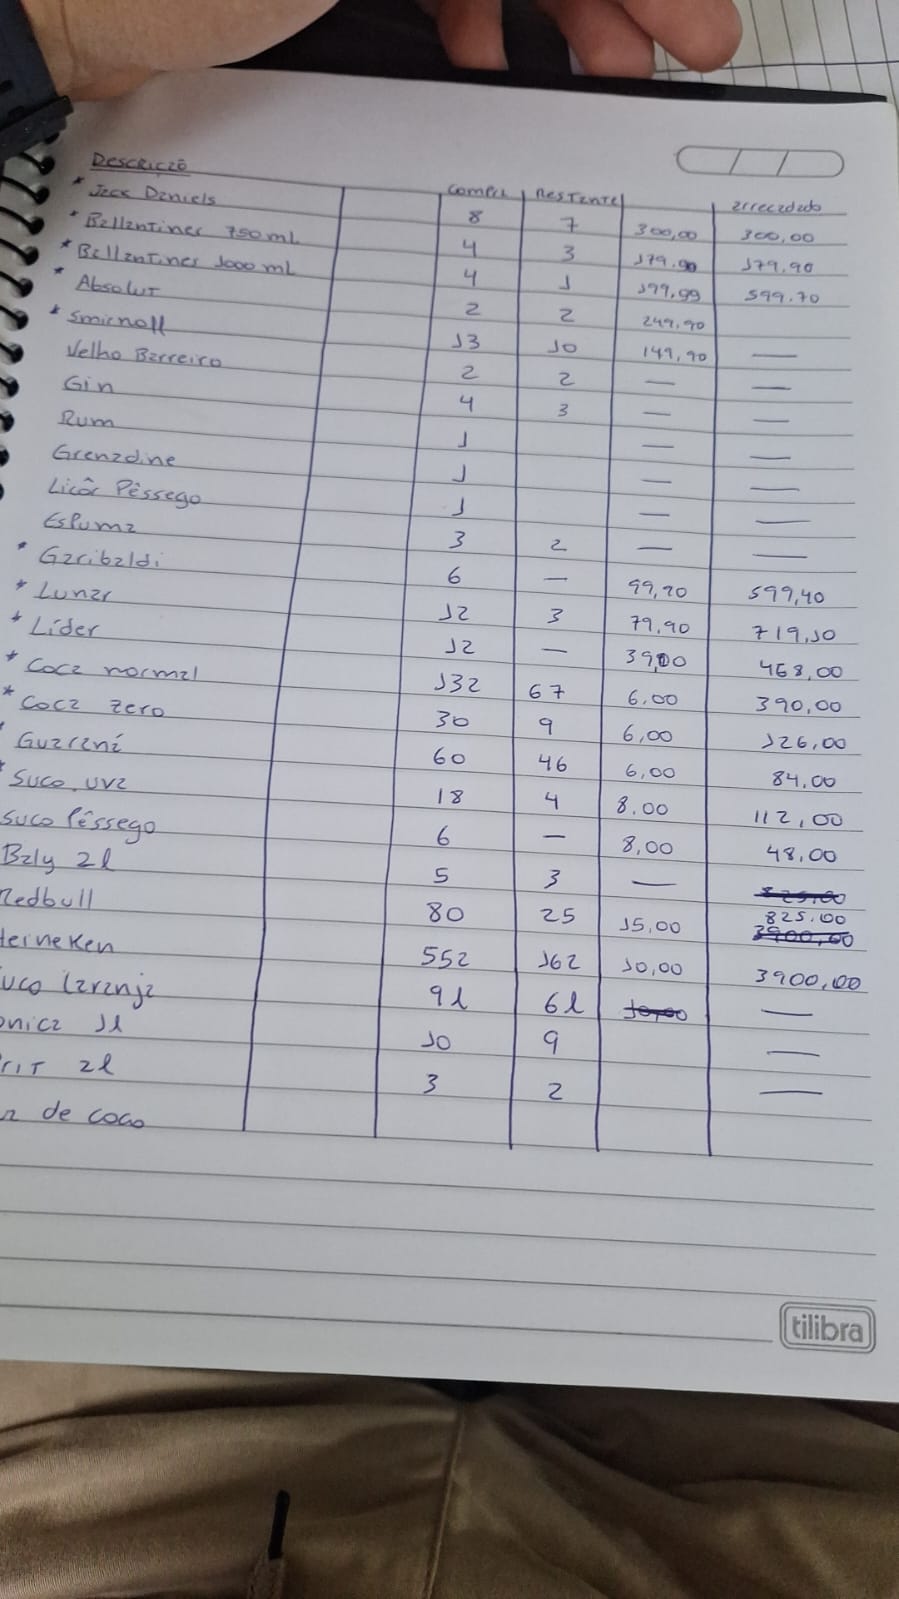 Descrição Compra Restante arrecadado
* Jack Daniels 8 7 300,00 300,00
* Ballantines 750 ml 4 3 179.90 179,90
* Ballantines 1000 ml 4 1 199,99 599.70
* Absolut 2 2 249,90
* Smirnoff 13 10 149,90 —
Velho Barreiro 2 2 — —
Gin 4 3 — —
Rum 1 — —
Grenadine 1 — —
Licôr Pêssego 1 — —
Espuma 3 2 — —
* Garibaldi 6 — 99,90 599,40
* Lunar 12 3 79,90 719,10
* Líder 12 — 39,00 468,00
* Coca normal 132 67 6.00 390,00
* Coca zero 30 9 6,00 126,00
Guaraná 60 46 6,00 84,00
* Suco uva 18 4 8.00 112,00
Suco Pêssego 6 — 8,00 48,00
Baly 2l 5 3 — 825,00
Redbull 80 25 15,00 825,00
3900,00
Heineken 552 162 10,00 3900,00
uco laranja 9l 6l 10,00 —
onica 1l 10 9 —
rit 2l 3 2 —
a de coco
tilibra